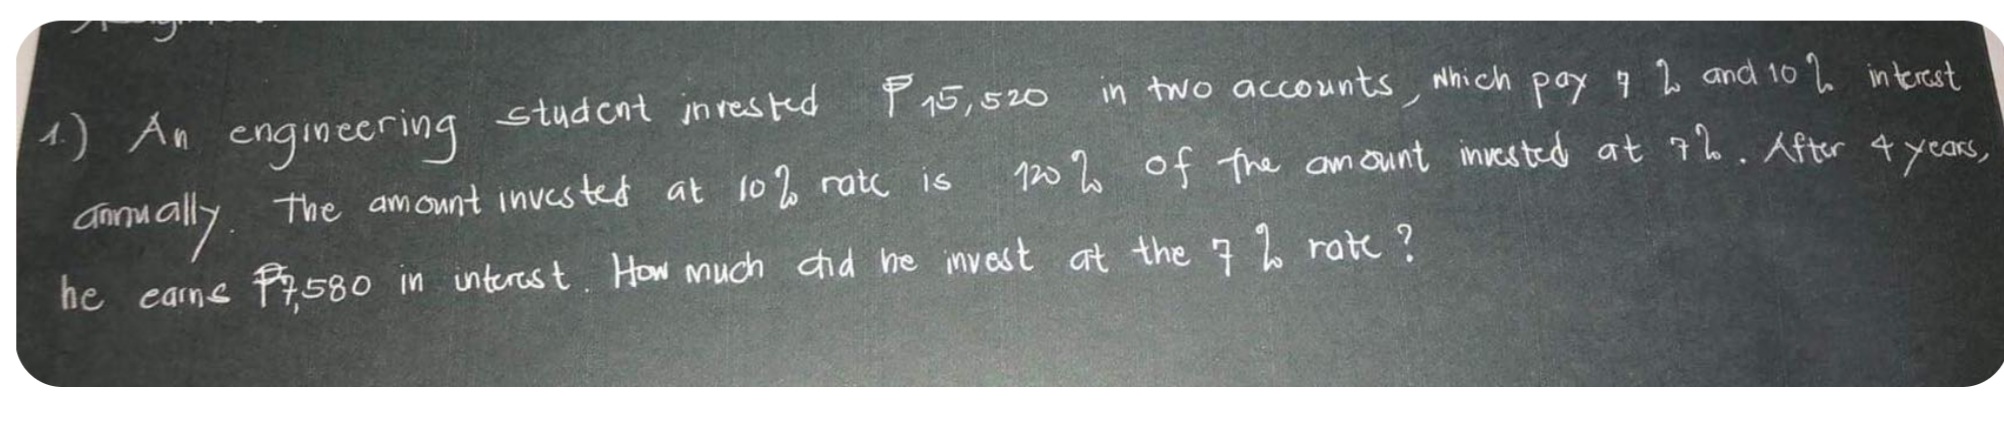 1.) An engineering student invested ₱15,520 in two accounts, which pay 7 % and 10 % interest
annually. The amount invested at 10 % rate is 120 % of the amount invested at 7 %. After 4 years,
he earns ₱7,580 in interest. How much did he invest at the 7 % rate ?